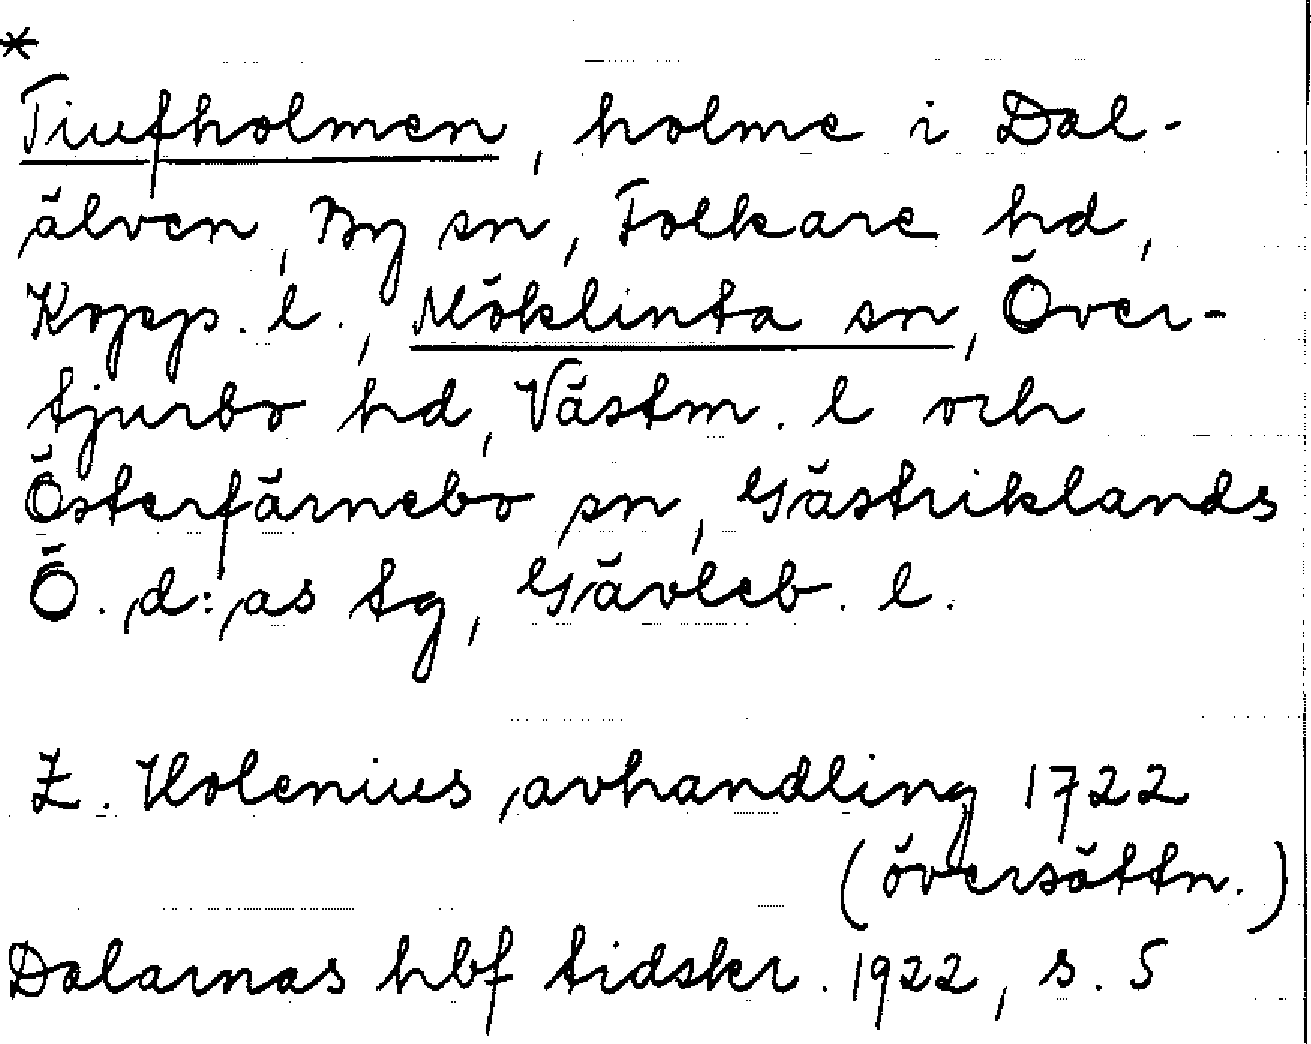 *
Tiufholmen, holme i Dal-
älven, By sn, Folkare hd,
Kopp. l., Möklinta sn, Över-
tjurbo hd, Västm. l och
Österfärnebo sn, Gästriklands
Ö. d:as tg, Gävleb. l.
Z. Holenius avhandling 1722
(översättn.)
Dalarnas hbf tidskr. 1922, s. 5